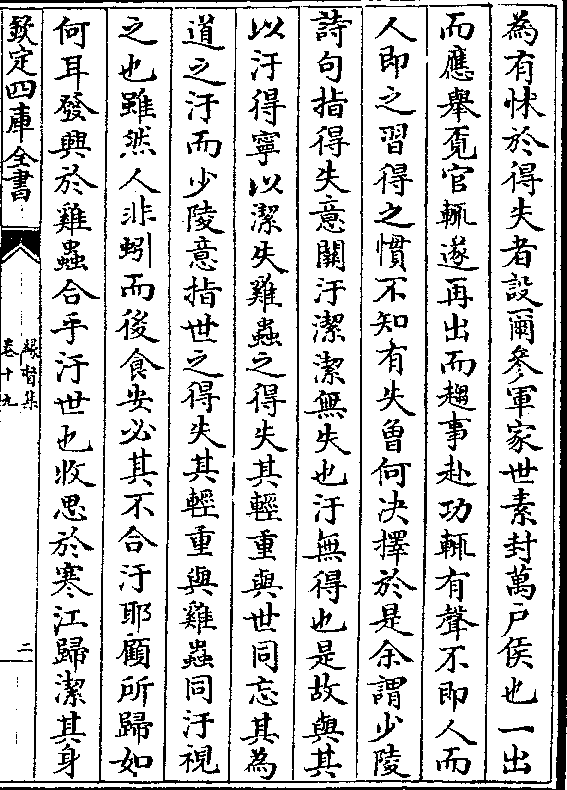 為有怵於得失者設蘭參軍家世素封萬戶侯也一出
而應舉覓官輒遂再出而趨事赴功輒有聲不即人而
人即之習得之慣不知有失曾何決擇於是余謂少陵
詩句指得失意關汙潔潔無失也汙無得也是故與其
以汙得寧以潔失雞蟲之得失其輕重與世同忘其為
道之汙而少陵意指世之得失其輕重與雞蟲同汙視
之也雖然人非蚓而後食安必其不合汙耶顧所歸如
何耳發興於雞蟲合乎汙世也收思於寒江歸潔其身
欽定四庫全書
緣督集
卷十九
二